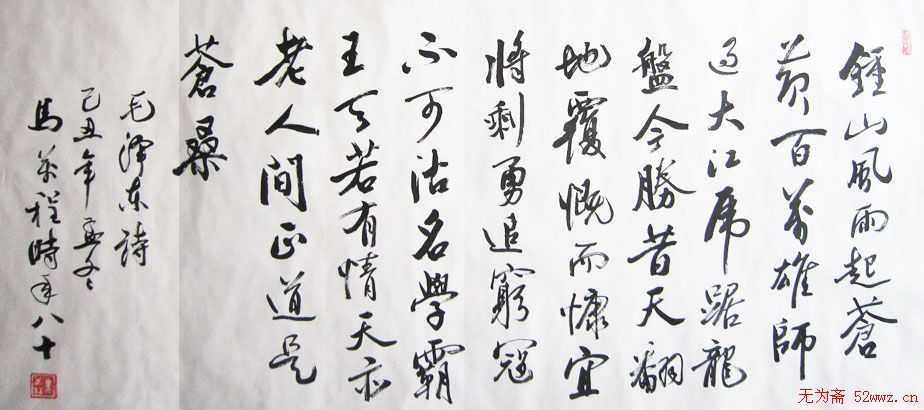 鍾山風雨起蒼
黃百萬雄師
過大江虎踞龍
盤今勝昔天翻
地覆慨而慷宜
將剩勇追窮寇
不可沽名學霸
王天若有情天亦
老人間正道是
蒼桑
毛澤東詩
己丑年孟冬
馬萬程時年八十
无为斋 52wwz.cn